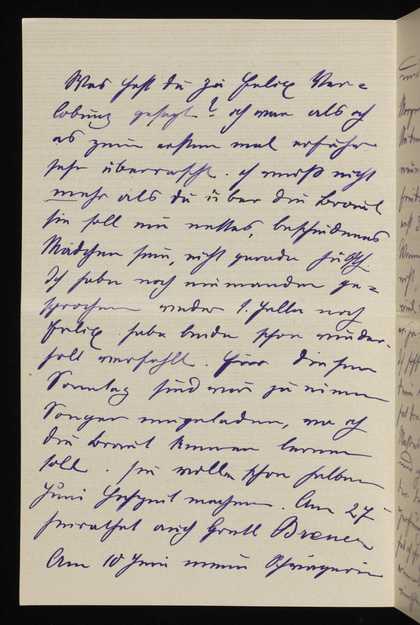 Was hast du zu Felix Ver=
lobung gesagt? ich war als ich
es zum ersten mal erfuhr
sehr überrascht. ich weiß nicht
mehr als du über die Braut
sie soll ein nettes, bescheidenes
Mädchen sein, nicht gerade hübsch
Ich habe noch niemanden ge=
sprochen weder noch
Felix habe beide schon wieder-
holt verfehlt. Für diesen
Sonntag sind wir zu einem
Souper eingeladen, wo ich
die Braut kennen lernen
soll. Sie wollen schon halben
Juni Hochzeit machen. Am 27
heirathet auch Gretl
Am 10 Juni meine Schwägerin